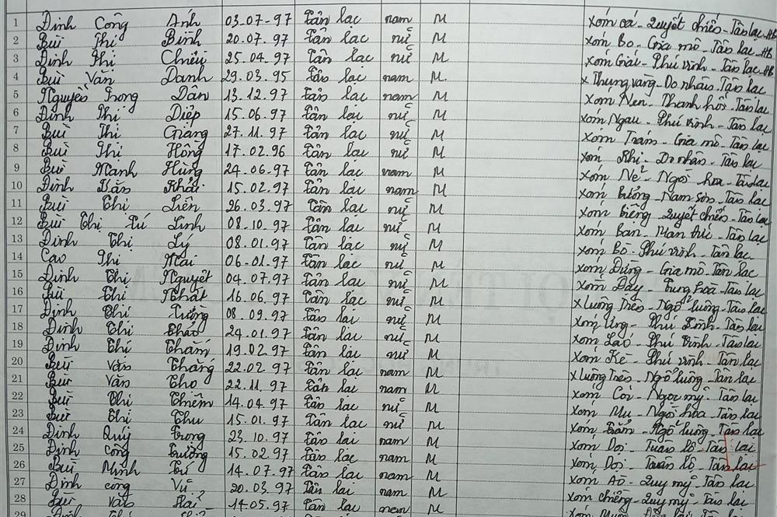 1 Đinh Công Ánh 03.07.97 Tân lạc nam M Xóm cá - Quyết chiến - Tân lạc - HB
2 Bùi Thị Bình 20.07.97 Tân lạc nữ M Xóm Bo - Gia mô - Tân lạc - HB
3 Đinh Thị Chiều 25.04.97 Tân lạc nữ M Xóm - Phú vinh - Tân lạc - HB
4 Bùi Văn Danh 29.03.95 Tân lạc nam M x Thung vàng - Do nhân - Tân lạc
5 Nguyễn Trọng Dân 13.12.97 Tân lạc nam M Xóm Nen - Thanh hối - Tân lạc
6 Đinh Thị Diệp 15.06.97 Tân lạc nữ M Xóm Ngau - Phú vinh - Tân lạc
7 Bùi Thị Giang 27.11.97 Tân lạc nữ M Xóm Trám - Gia mô - Tân lạc
8 Bùi Thị Hồng 17.02.96 Tân lạc nữ M Xóm - Tân lạc
9 Bùi Mạnh Hùng 24.06.97 Tân lạc nam M Xóm - Ngòi hoa - Tân lạc
10 Đinh Văn Khải 15.02.97 Tân lạc nam M Xóm - Nam sơn - Tân lạc
11 Bùi Thị Liên 26.03.97 Tân lạc nữ M Xóm - Quyết chiến - Tân lạc
12 Bùi Thị Tú Linh 08.10.97 Tân lạc nữ M Xóm Ban - Mãn đức - Tân lạc
13 Đinh Thị Lý 08.01.97 Tân lạc nữ M Xóm Bò - Phú vinh - Tân lạc
14 Cao Thị Mai 06.01.97 Tân lạc nữ M Xóm - Gia mô - Tân lạc
15 Đinh Thị Nguyệt 04.07.97 Tân lạc nữ M Xóm - Trung hoà - Tân lạc
16 Bùi Thị Nhất 16.06.97 Tân lạc nữ M x Luông Trên - Ngổ luông - Tân lạc
17 Đinh Thị 08.09.97 Tân lạc nữ M Xóm - Phú Vinh - Tân lạc
18 Đinh Thị 24.01.97 Tân lạc nữ M Xóm - Phú Vinh - Tân lạc
19 Đinh Thị 19.02.97 Tân lạc nữ M Xóm Kè - Phú vinh - Tân lạc
20 Bùi Văn Thắng 22.02.97 Tân lạc nam M x Luông Trên - Ngổ luông - Tân lạc
21 Bùi Văn Thọ 22.11.97 Tân lạc nam M Xóm - Ngọc mỹ - Tân lạc
22 Bùi Thị 14.04.97 Tân lạc nữ M Xóm - Ngòi hoa - Tân lạc
23 Bùi Thị Thu 15.01.97 Tân lạc nữ M Xóm - Ngổ luông - Tân lạc
24 Đinh Quý Trọng 23.10.97 Tân lạc nam M Xóm Dọi - Tuân lộ - Tân lạc
25 Đinh công Trường 15.02.97 Tân lạc nam M Xóm Dọi - Tuân lộ - Tân lạc
26 Bùi Minh Tú 14.07.97 Tân lạc nam M Xóm - Quy mỹ - Tân lạc
27 Đinh công Vũ 20.03.97 Tân lạc nam M Xóm chiềng - Quy mỹ - Tân lạc
28 Bùi Văn 14.05.97 Tân lạc nam M
29